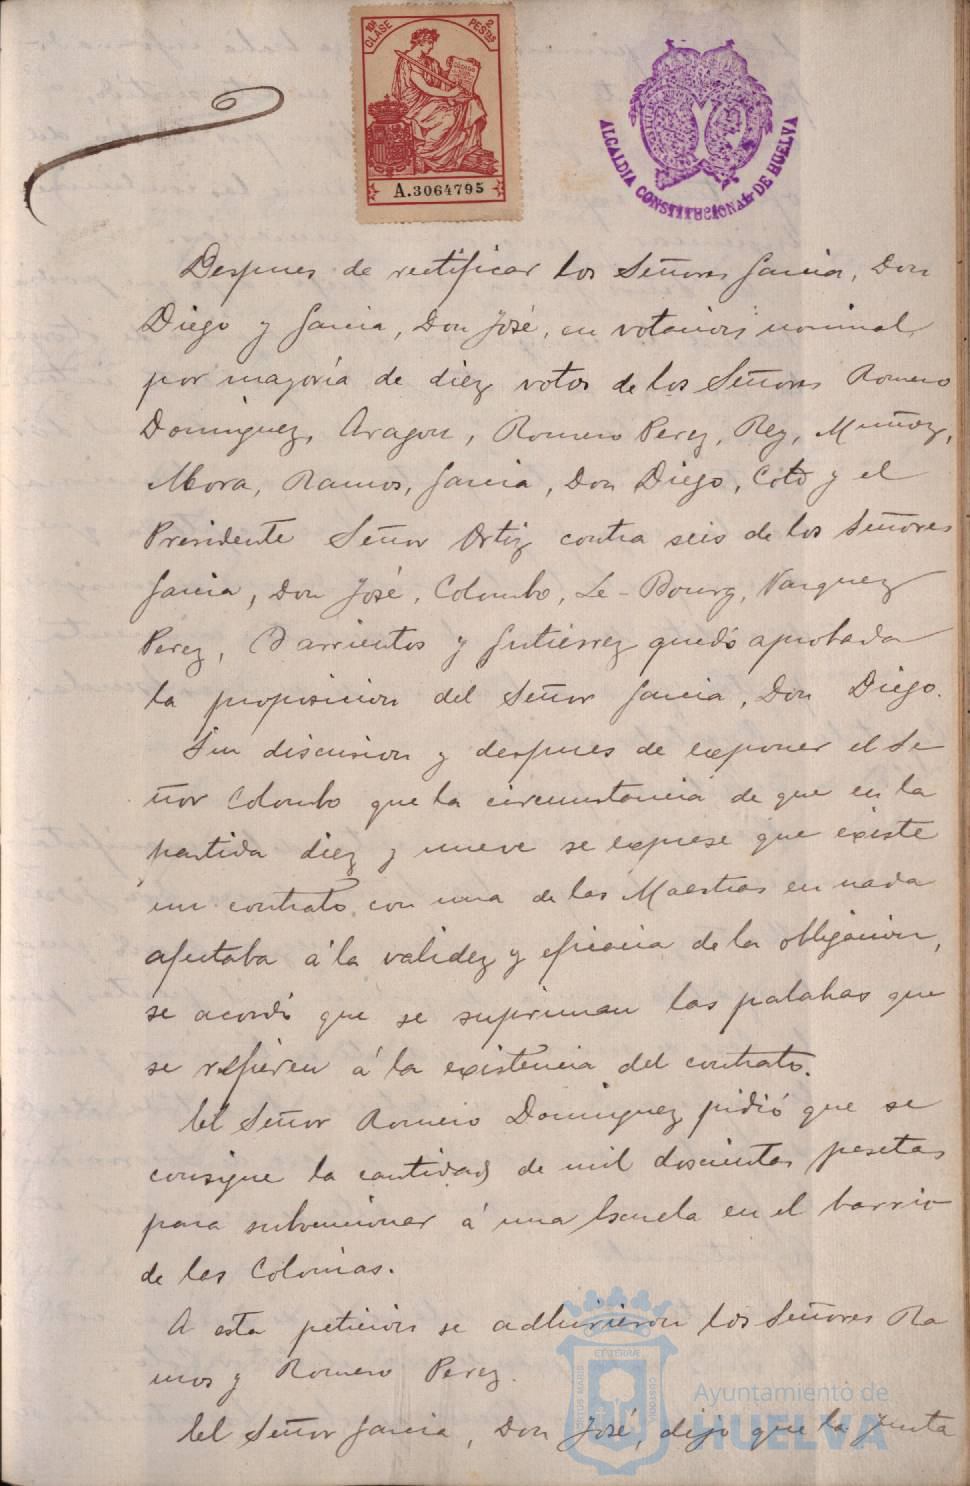 10ª CLASE
2 PESETAS
A.3064795
ALCALDIA CONSTITUCIONAL DE HUELVA
Despues de rectificar los Señores Garcia, Don
Diego y Garcia, Don José, en votacion nominal
por mayoría de diez votos de los Señores Romero
Dominguez, Aragon, Romero Perez, Rey, Muñoz,
Mora, Ramos, Garcia, Don Diego, Coto y el
Presidente Señor Ortiz contra seis de los Señores
Garcia, Don José, Colombo, Le-Bourg, Vazquez
Perez, Barrientos y Gutierrez quedó aprobada
la proposicion del Señor Garcia, Don Diego.
Sin discusion y despues de exponer el Se
ñor Colombo que la circunstancia de que en la
partida diez y nueve se exprese que existe
un contrato con una de las Maestras en nada
afectaba á la validez y eficacia de la obligacion,
se acordó que se supriman las palabras que
se refieren á la existencia del contrato.
El Señor Romero Dominguez pidió que se
consigne la cantidad de mil doscientas pesetas
para subvencionar á una Escuela en el barrio
de las Colonias.
A esta peticion se adhirieron los Señores Ra
mos y Romero Perez.
El Señor Garcia, Don José, dijo que la Junta
PORTUS MARIS
ET TERRAE
CUSTODIA
Ayuntamiento de
HUELVA